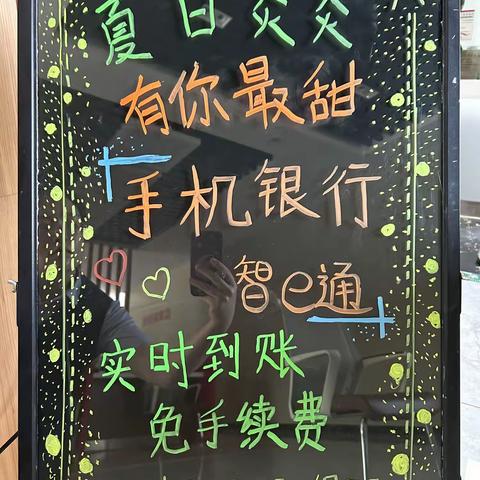 夏日炎炎
有你最甜
手机银行
智e通
实时到账
免手续费